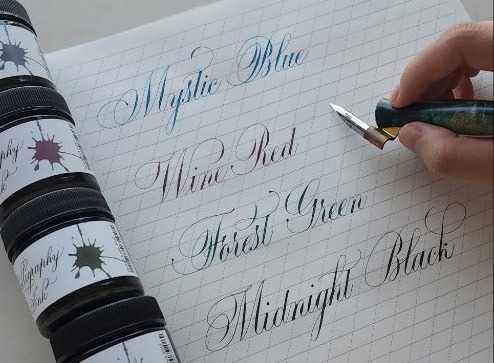 Mystic Blue
Wine Red
Forest Green
Midnight Black
Ink